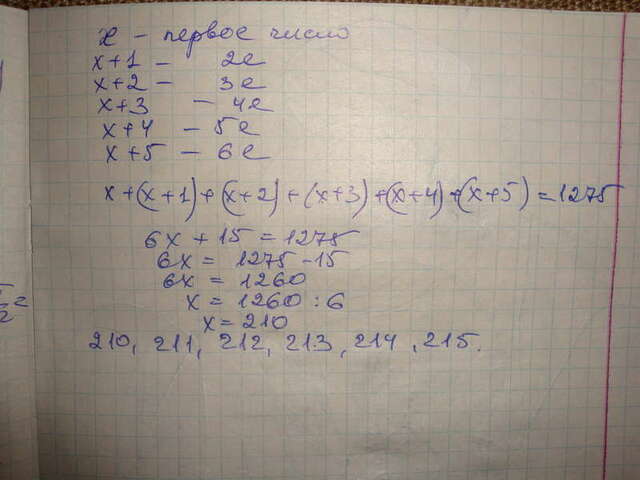 x - первое число
x+1 - 2е
x+2 - 3е
x+3 - 4е
x+4 - 5е
x+5 - 6е
x+(x+1)+(x+2)+(x+3)+(x+4)+(x+5)=1275
6x+15=1275
6x= 1275-15
6x = 1260
x = 1260 : 6
x=210
210, 211, 212, 213, 214, 215.
2=